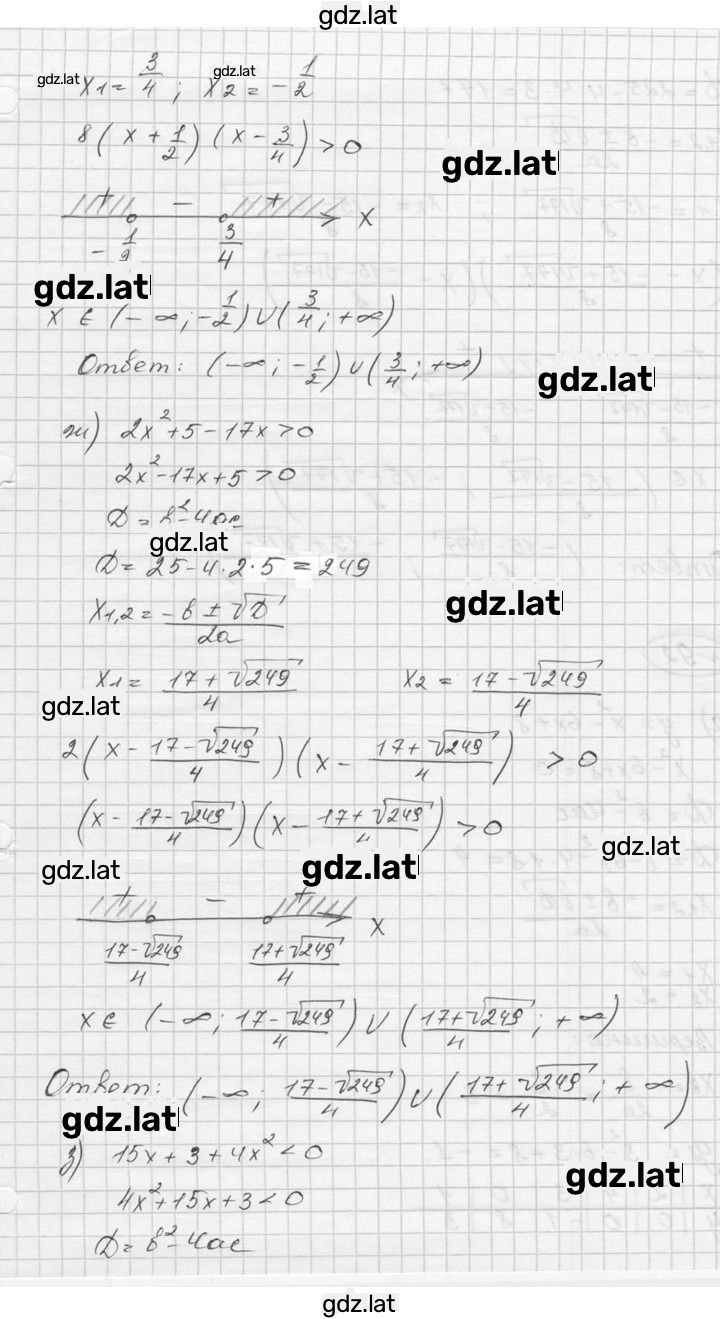 gdz.lat
x₁ = 3/4 ; x₂ = -1/2
gdz.lat gdz.lat
8(x + 1/2)(x - 3/4) > 0
gdz.lat
+ − + x
-1/2 3/4
gdz.lat
x ∈ (-∞; -1/2) ∪ (3/4; +∞)
Ответ: (-∞; -1/2) ∪ (3/4; +∞)
gdz.lat
ж) 2x² + 5 - 17x > 0
2x² - 17x + 5 > 0
D = b² - 4ac
gdz.lat
D = 25 - 4·2·5 = 249
gdz.lat
x₁,₂ = (-b ± √D)/2a
x₁ = (17 + √249)/4 x₂ = (17 - √249)/4
gdz.lat
2(x - (17 - √249)/4)(x - (17 + √249)/4) > 0
(x - (17 - √249)/4)(x - (17 + √249)/4) > 0
gdz.lat
gdz.lat gdz.lat
+ − + x
(17 - √249)/4 (17 + √249)/4
x ∈ (-∞; (17 - √249)/4) ∪ ((17 + √249)/4; +∞)
Ответ: (-∞; (17 - √249)/4) ∪ ((17 + √249)/4; +∞)
gdz.lat
з) 15x + 3 + 4x² < 0
gdz.lat
4x² + 15x + 3 < 0
D = b² - 4ac
gdz.lat